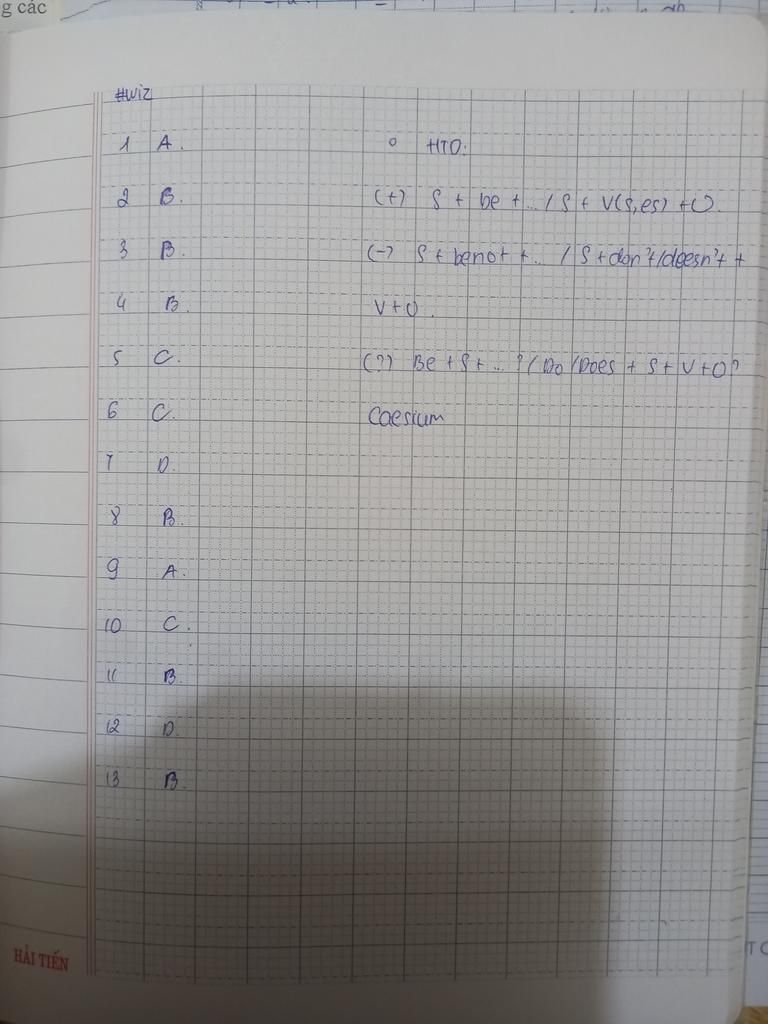 g các
#wiz
1 A.
2 B.
3 B.
4 B.
5 C.
6 C.
7 D.
8 B.
9 A.
10 C.
11 B.
12 D.
13 B.
o HTĐ:
(+) S + be + ... / S + V(s,es) + O.
(-) S + be not + ... / S + don't/doesn't +
V + O.
(?) Be + S + ... ? / Do/Does + S + V + O?
Caesium
HẢI TIẾN